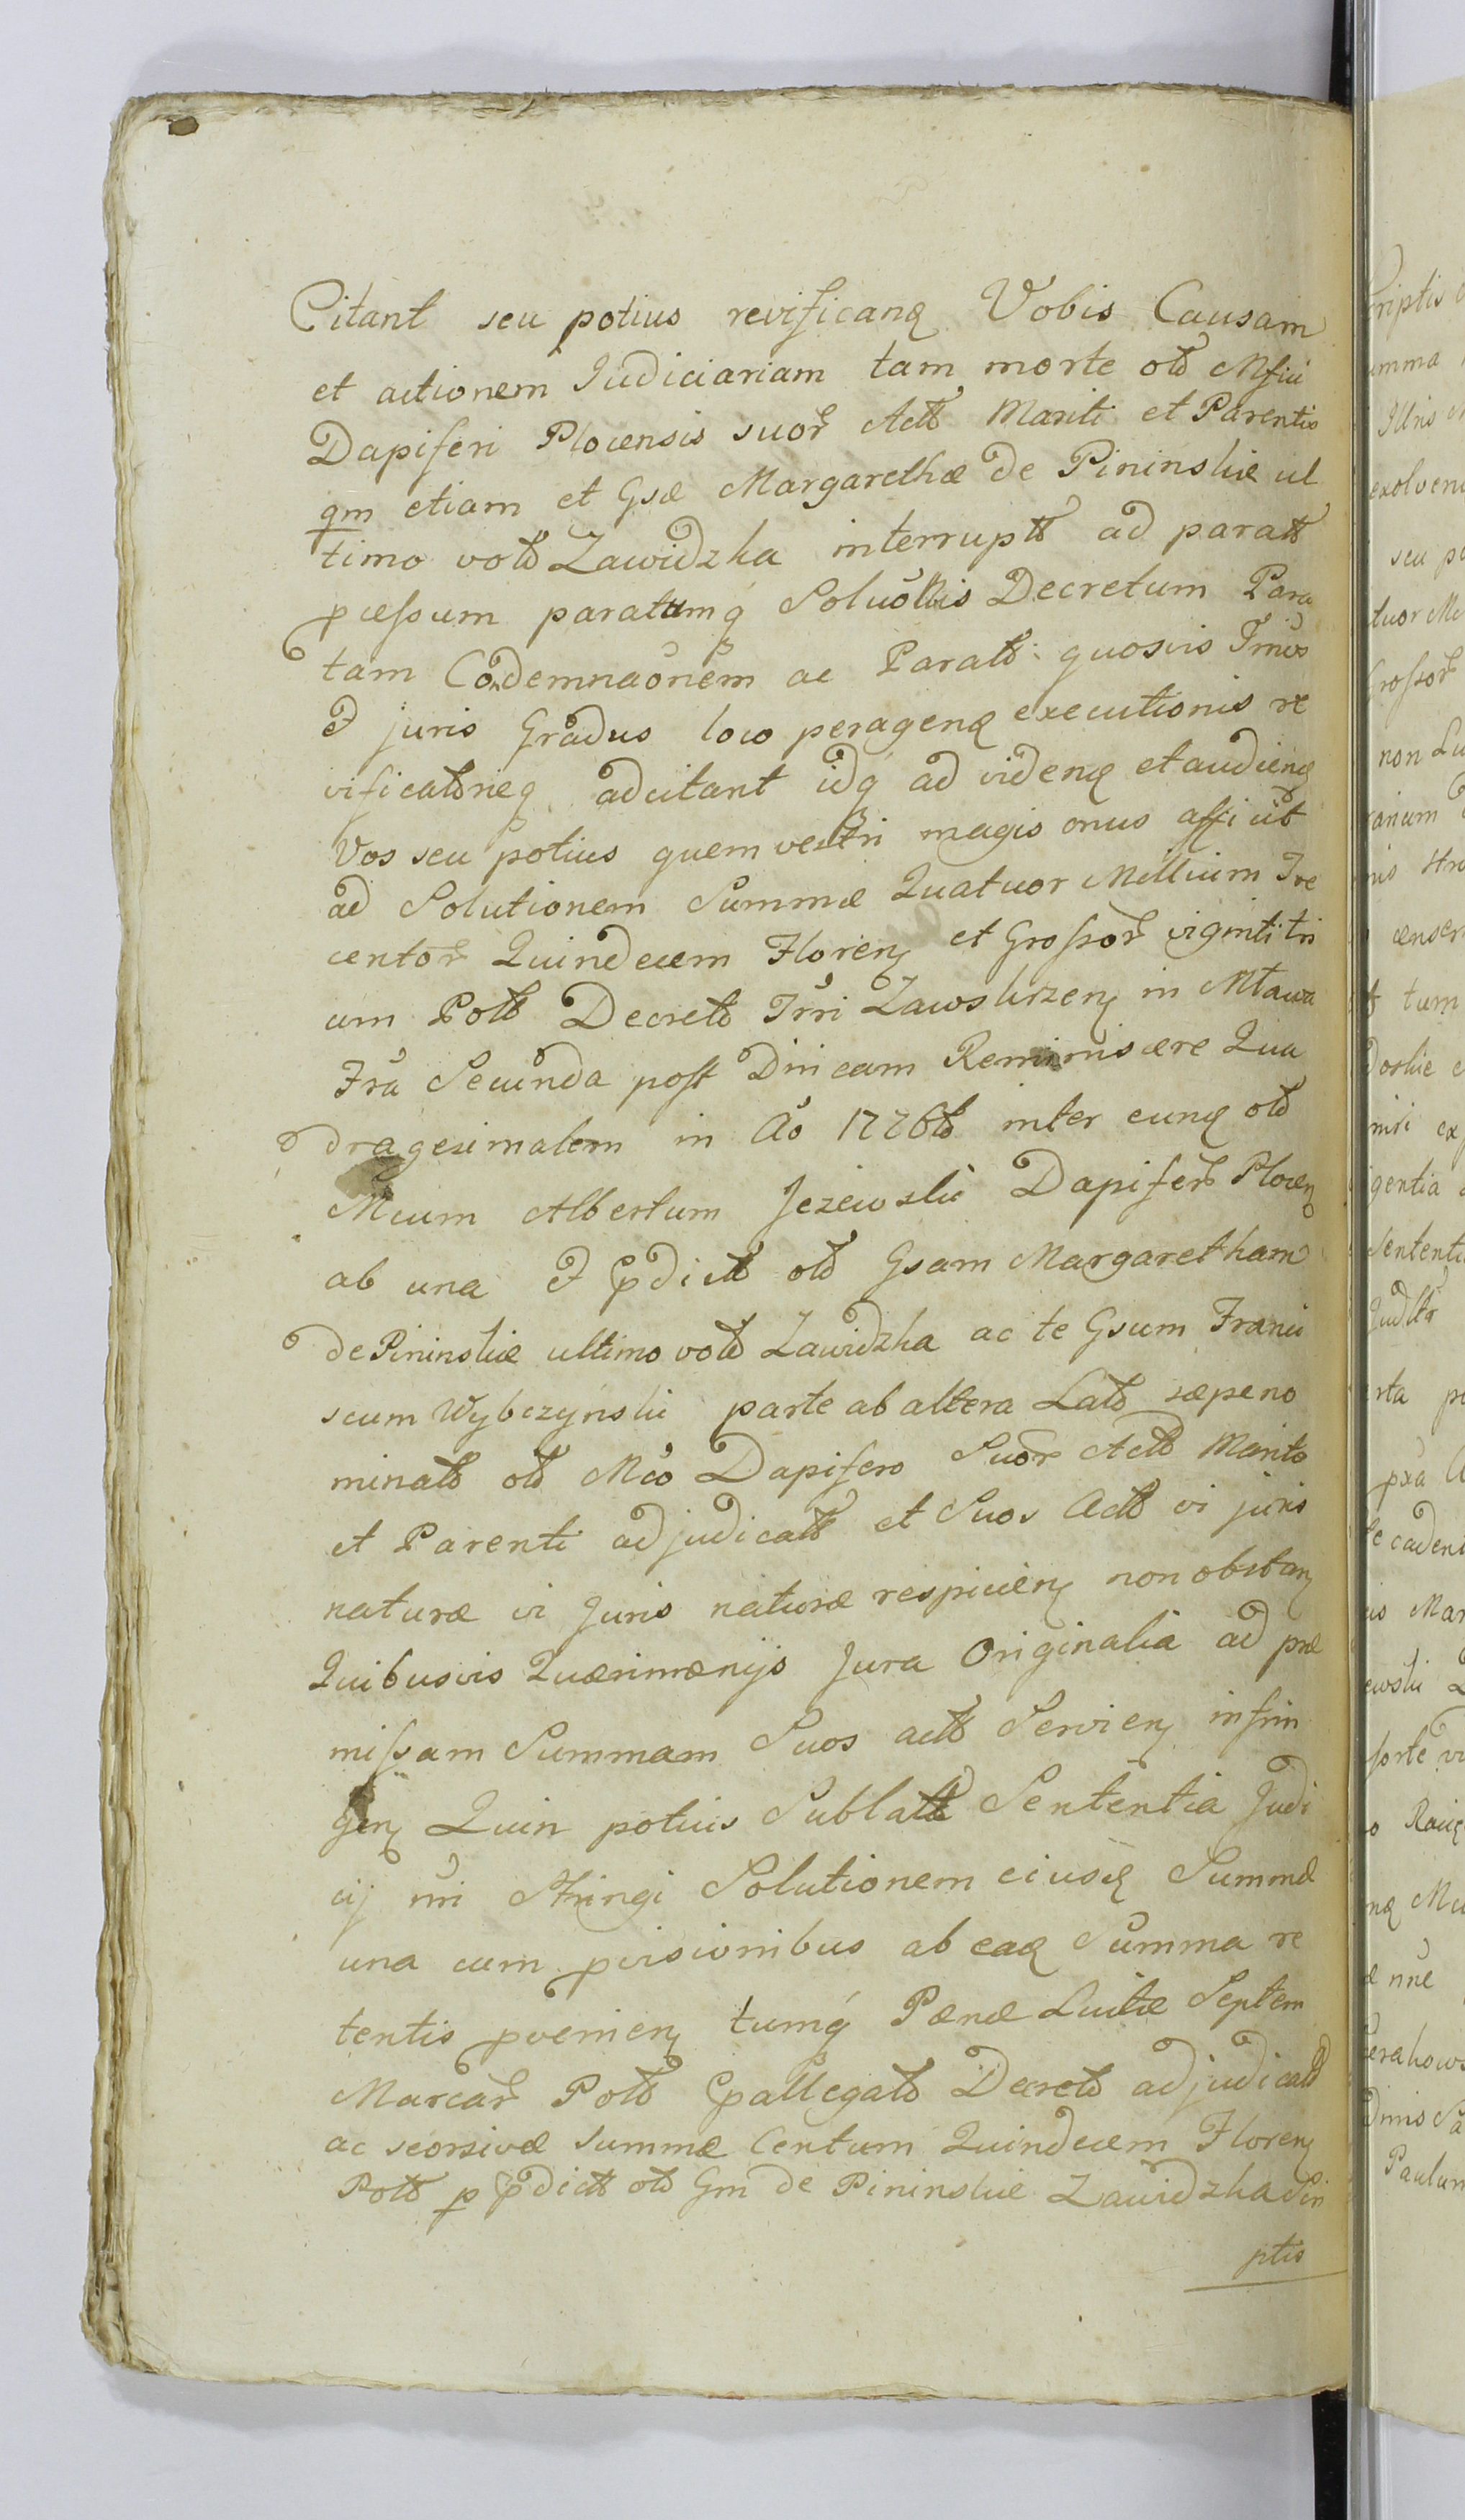 Citant seu potius revificanq Vobis Causam
et actionem Iudiciariam tam morte old Mfici
Dapiferi Plocensis suor Actt Mariti et Parentis
qm etiam et Gsæ Margarethæ de Pininskie ul
timo votd Zawidzka interruptt ad paratt
pcessum paratamq Soluõttis Decretum Para
tam Condemnaõnem ac Paratd quosvis Tmos
& juris Gradus loco peragenq executionis re
vificatorieq adcitant idq ad videnq et audienq
Vos seu potius quem vestri magis onus affiiut
ad Solutionem Summæ Quatuor Millium Tre
centor Quindecem Floren et Grossor viginti tri
um Poll Decretd Trri Zawskrzen in Mława
Fra Secunda post Dnicam Reminiscere Qua
dragesimalem in Ao 1776td inter eunq old
Mcum Albertum Jezewski Dapifer Plocen
ab una & pdictt old Gsam Margaretham
de Pininskie ultimo votd Zawidzka ac te Gsum Franci
scum Wybczynski parte ab altera Latd sæpeno
minatd old Mco Dapifero Suor Actd Marito
et Parenti adjudicatt et Suos Actt vi juris
naturæ vi Juris naturæ respicien non obstan
Quibusvis Quærimæniis Jura Originalia ad præ
missam Summam Suos actt Servien infrin
gen Quin potius Sublatt Sententia Judi
cij nri Stringi Solutionem eiusq Summæ
una cum pvisionibus ab eaq Summa re
tentis pvenien tumq Pænæ Luitæ Septem
Marcar Poll pallegatd Decretd adjudicatd
ac seorsivæ summæ Centum Quindecem Floren
Poll p pdictt old Gm de Pininskie Zawidzka Scri
ptis